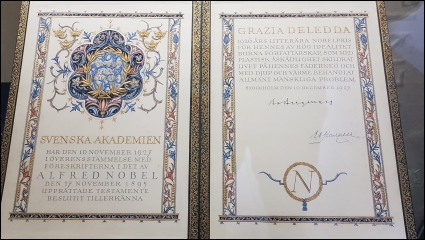 SVENSKA AKADEMIEN
HAR DEN 10 NOVEMBER 1927
I ÖVERENSSTÄMMELSE MED
FÖRESKRIFTERNA I DET AV
ALFRED NOBEL
DEN 27 NOVEMBER 1895
UPPRÄTTADE TESTAMENTE
BESLUTIT TILLERKÄNNA
GRAZIA DELEDDA
1926 ÅRS LITTERÄRA NOBELPRIS
FÖR HENNES AV HÖG IDEALITET
BURNA FÖRFATTARSKAP SOM MED
PLASTISK ÅSKÅDLIGHET SKILDRAT
LIVET PÅ HENNES FÄDERNEÖ OCH
MED DJUP OCH VÄRME BEHANDLAT
ALLMÄNT MÄNSKLIGA PROBLEM
STOCKHOLM DEN 10 DECEMBER 1927
N